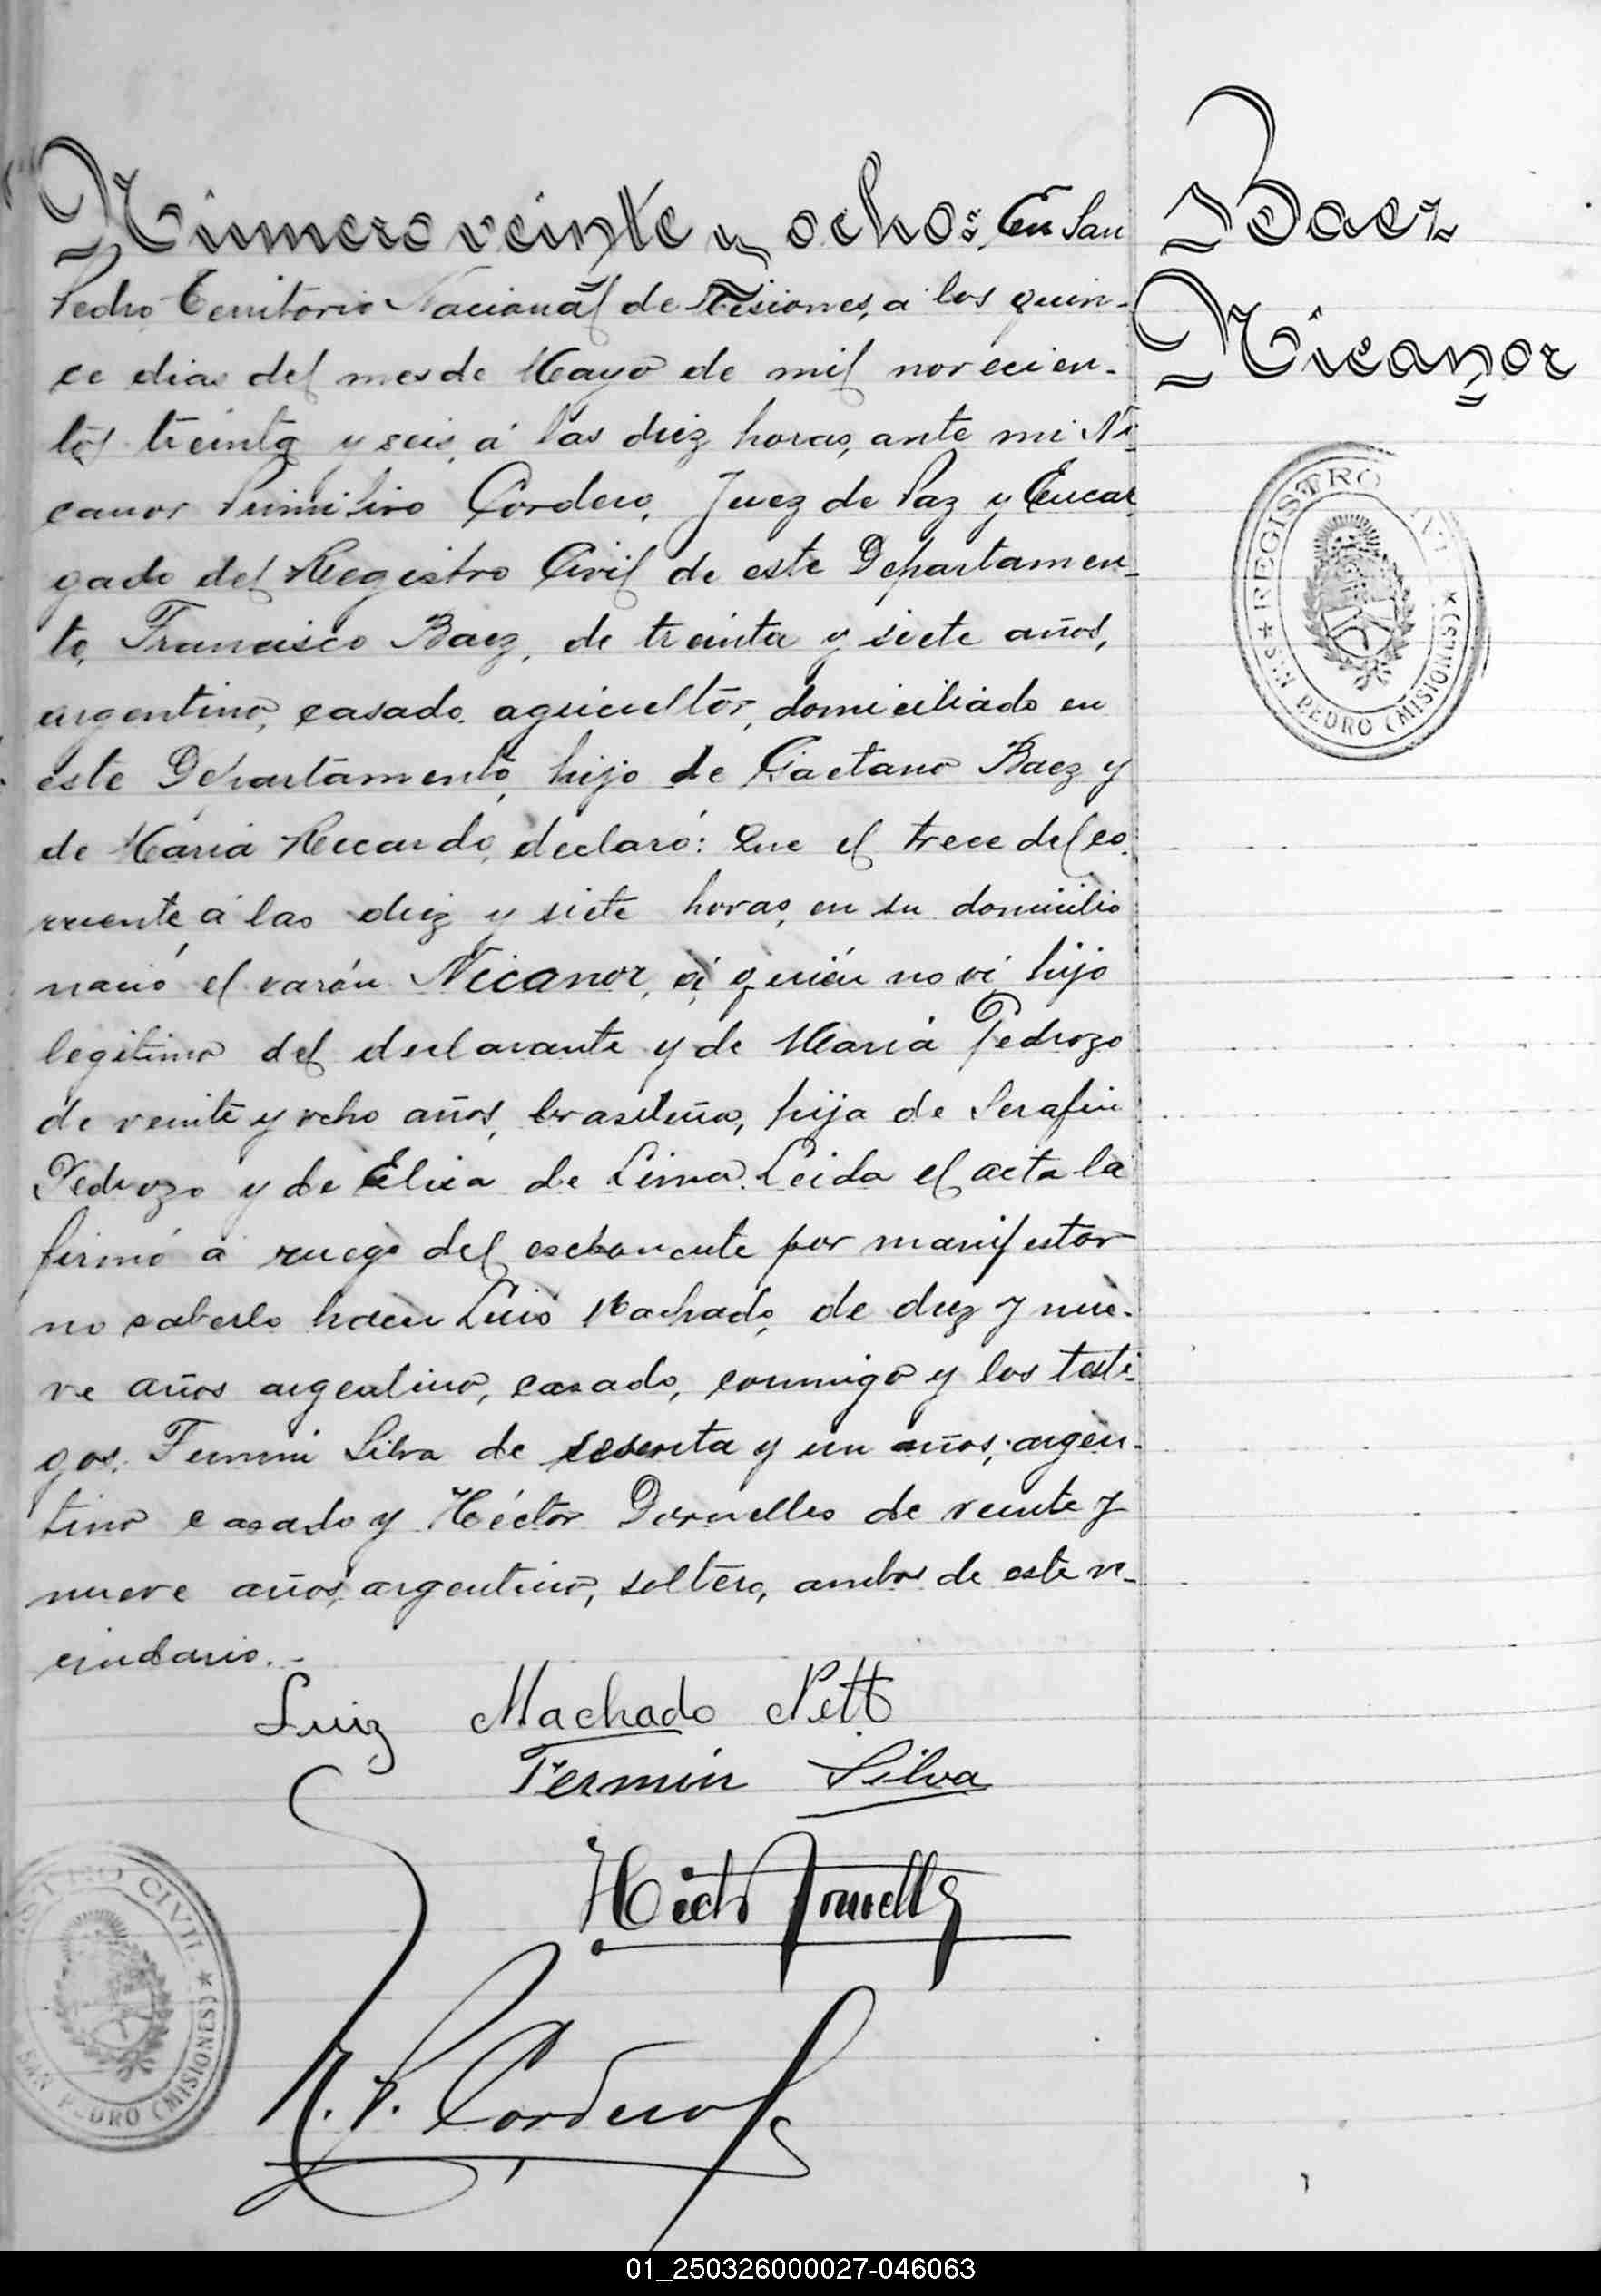 Número veinte y ocho: En San
Pedro Territorio Nacional de Misiones, a los quin-
ce dias del mes de Mayo de mil novecien-
tos treinta y seis, á las diez horas, ante mi Ni-
canor Primitivo Cordero, Juez de Paz y Encar
gado del Registro Civil de este Departamen-
to, Francisco Baez, de treinta y siete años,
argentino, casado, agricultor, domiciliado en
este Departamento, hijo de Gaetano Baez y
de Maria Reccardo, declaró: Que el trece del co-
rriente á las diez y siete horas, en su domicilio
nació el varón Nicanor, á quién no ví hijo
legitimo del declarante y de Maria Pedrozo
de veinte y ocho años, brasileña, hija de Serafin
Pedrozo y de Elisa de Lima. Leida el acta la
firmó a ruego del por manifestar
no saberlo hacer Luis Machado, de diez y nue-
ve años argentino, casado, conmigo y los testi-
gos: Fermin Silva de sesenta y un años, argen-
tino casado y Héctor Dornelles de veinte y
nueve años, argentino, soltero, ambos de este ve-
cindario.-
Luiz Machado Nett
Fermin Silva
Hector Dornelles
N. P. Cordero
Baez
Nicanor
REGISTRO CIVIL
SAN PEDRO (MISIONES)
REGISTRO CIVIL
SAN PEDRO (MISIONES)
01_250326000027-046063